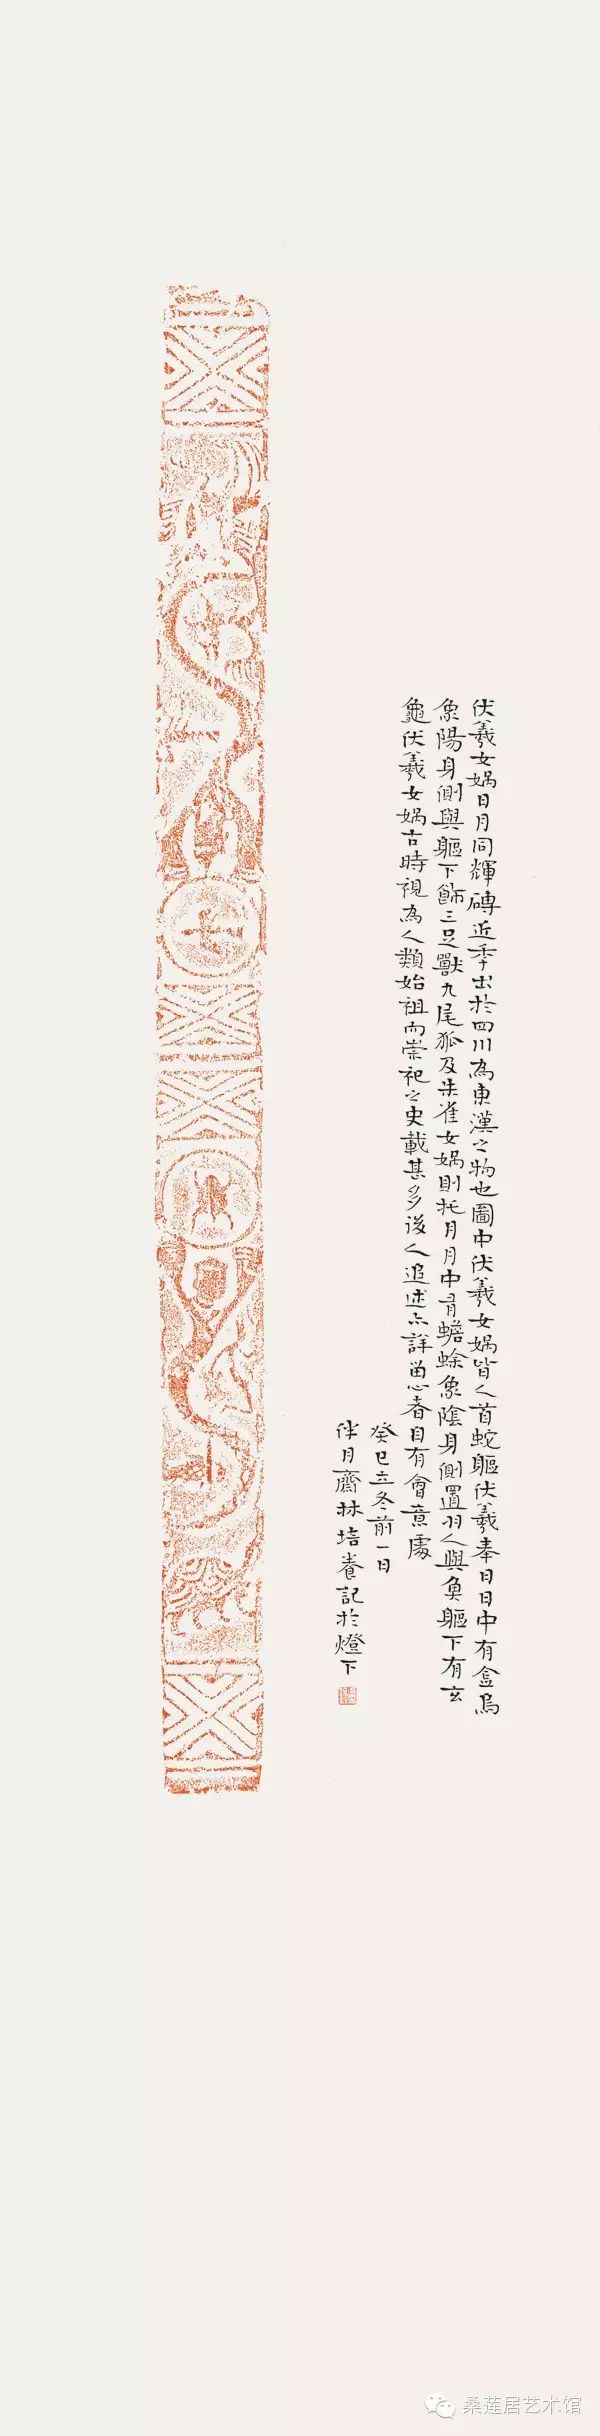 伏羲女媧日月同輝磚近季出於四川為東漢之物也圖中伏羲女媧皆人首蛇軀伏羲奉日日中有金烏
象陽身側與軀下飾三足獸九尾狐及朱雀女媧則托月月中有蟾蜍象陰身側置羽人與魚軀下有玄
龜伏羲女媧古時視為人類始祖而崇祀之史載甚多後人追述亦詳留心者自有會意處
癸巳立冬前一日
伴月齋林培養記於燈下
桑莲居艺术馆